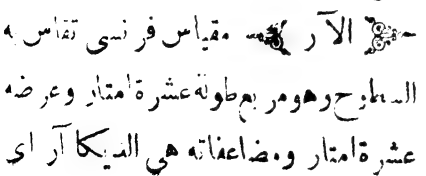 الآر مقياس فرنسى تقاس به
السطوح وهو مربع طوله عشرة امتار وعرضه
عشرة امتار ومضاعفاته هى الديكا آر اى